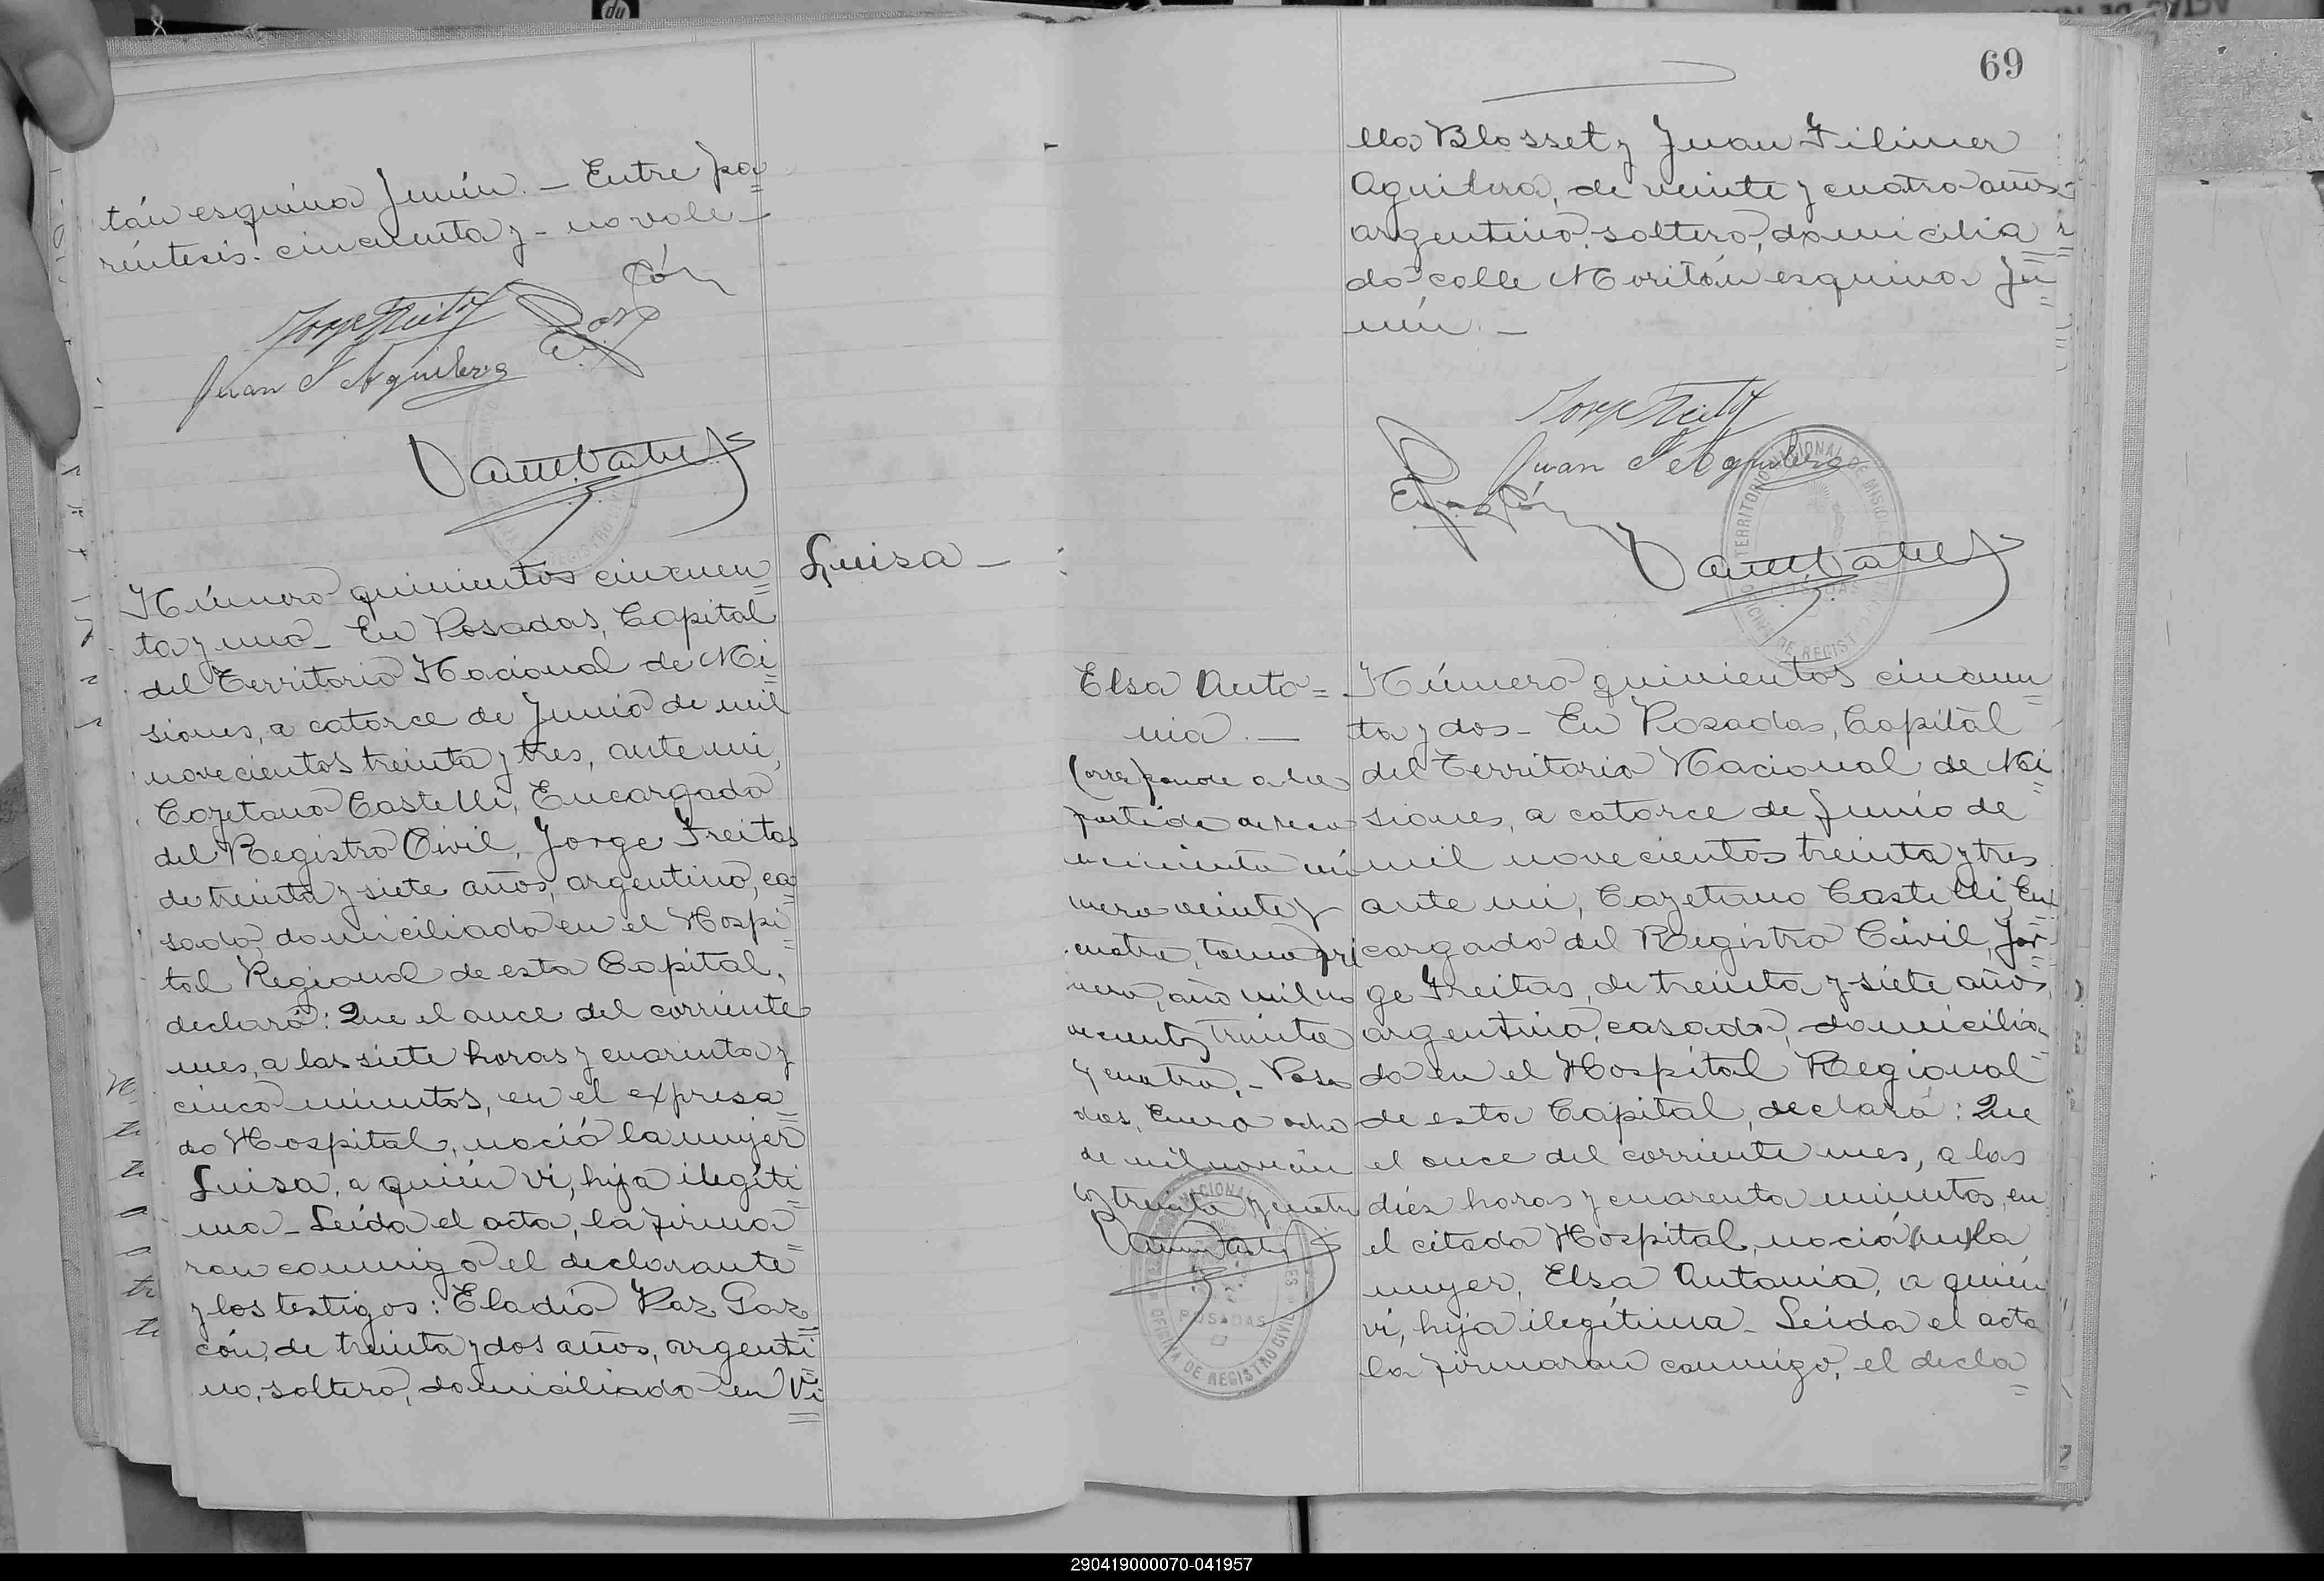 tán esquina Junín. — Entre pa=
réntesis: cincuenta y - no vale —
Jorge Freitas
Juan F Aguilera
Número quinientos cincuen=
ta y uno — En Posadas, Capital
del Territorio Nacional de Mi=
siones, a catorce de Junio de mil
novecientos treinta y tres, ante mi,
Cayetano Castelli, Encargado
del Registro Civil, Jorge Freitas
de treinta y siete años, argentino, ca=
sado, domiciliado en el Hospi=
tal Regional de esta Capital,
declaró: Que el once del corriente
mes, a las siete horas y cuarenta y
cinco minutos, en el expresa=
do Hospital, nació la mujer
Luisa, a quién vi, hija ilegíti=
ma — Leída el acta, la firma=
ron conmigo el declarante
y los testigos: Eladio Paz Gar=
cón, de treinta y dos años, argenti=
no, soltero, domiciliado en Vi=
Luisa —
69
lla Blosset y Juan Filimer
Aguilera, de veinte y cuatro años
argentino, soltero, domicilia=
do calle Moritán esquina Ju=
nín. —
Jorge Freitas
Juan F Aguilera
TERRITORIO NACIONAL DE MISIONES
POSADAS
OFICINA DE REGISTRO CIVIL
Elsa Anto=
nia. —
Corresponde a la
partida de reco
nocimiento nú
mero veinte y
cuatro, tomo pri
mero, año mil no
vecientos treinta
y cuatro. — Posa
das, Enero ocho
de mil novecien
tos treinta y cuatro
POSADAS
OFICINA DE REGISTRO CIVIL
Número quinientos cincuen
ta y dos — En Posadas, Capital
del Territorio Nacional de Mi=
siones, a catorce de Junio de
mil novecientos treinta y tres
ante mi, Cayetano Castelli En=
cargado del Registro Civil, Jor=
ge Freitas, de treinta y siete años,
argentino, casado, domicilia=
do en el Hospital Regional
de esta Capital, declaró: Que
el once del corriente mes, a las
diéz horas y cuarenta minutos, en
el citado Hospital, nació la
mujer, Elsa Antonia, a quién
vi, hija ilegítima — Leida el acta
la firmaron conmigo, el decla=
290419000070-041957